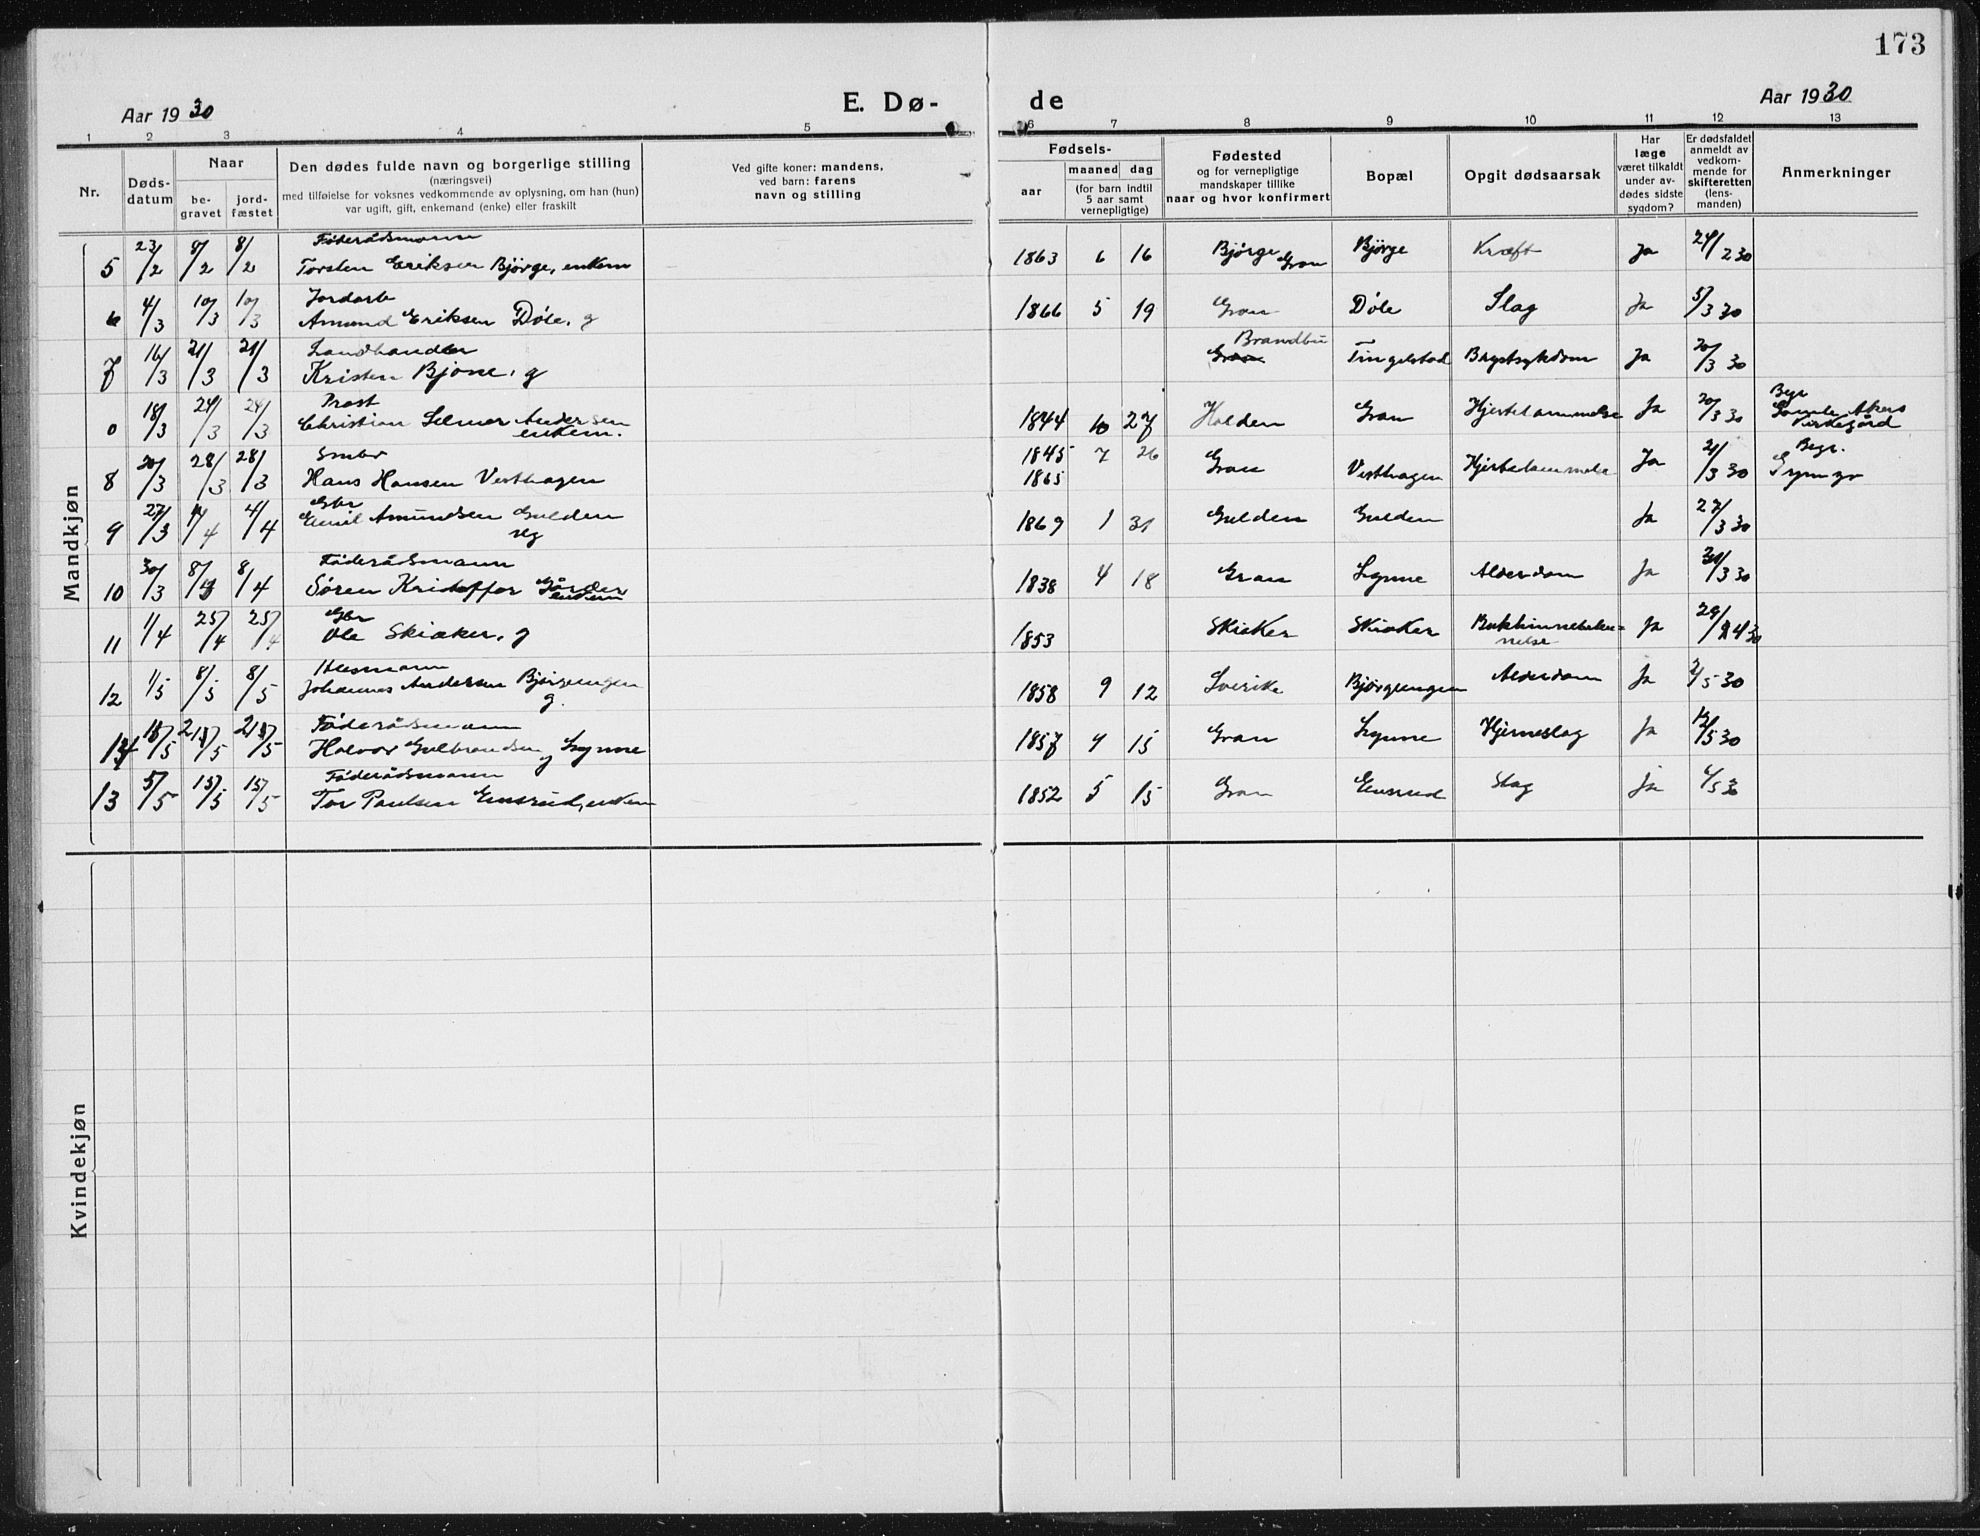 173
Aar 1930
E. Dø-
de
Aar 1930
1 2 3 4 5 6 7 8 9 10 11 12 13
Nr.
Døds-
datum
Naar
be-
gravet
jord-
fæstet
Den dødes fulde navn og borgerlige stilling
(næringsvei)
med tilføielse for voksnes vedkommende av oplysning, om han (hun)
var ugift, gift, enkemand (enke) eller fraskilt
Ved gifte koner: mandens,
ved barn: farens
navn og stilling
Fødsels-
aar
maaned dag
(for barn indtil
5 aar samt
vernepligtige)
Fødested
og for vernepligtige
mandskaper tillike
naar og hvor konfirmert
Bopæl
Opgit dødsaarsak
Har
læge
været tilkaldt
under av-
dødes sidste
sygdom?
Er dødsfaldet
anmeldt av
vedkom-
mende for
skifteretten
(lens-
manden)
Anmerkninger
Mandkjøn
Føderådsmann
5 23/2 8/2 8/2 Torsten Eriksen Bjørge, enkem 1863 6 16 Bjørge Gran Bjørge Kræft Ja 24/2 30
Jordarb
6 4/3 10/3 10/3 Amund Eriksen Døle, g 1866 5 19 Gran Døle Slag Ja 5/3 30
Landhandler
Brandbu
7 16/3 21/3 21/3 Kristen Bjone, g Gran Tingelstad Brystsykdom Ja 20/3 30
Prost
Begr
0 18/3 24/3 24/3 Christian Selmer Andersen 1844 10 27 Halden Gran Hjertelammelse Ja 20/3 30 Gamle Akers
enkem. kirkegård
Smbr 1845 7 26 Begr.
8 20/3 28/3 28/3 Hans Hansen Vesthagen 1865 Gran Vesthagen Hjertelammelse Ja 21/3 30
Gbr
9 27/3 4/4 4/4 Emil Amundsen Gulden 1869 1 31 Gulden Gulden Ja 27/3 30
ug
Føderådsmann
10 30/3 8/4 8/4 Søren Kristoffer Gården 1838 4 18 Gran Lynne Alderdom Ja 31/3 30
enkem
Gbr
11 1/4 25/4 25/4 Ole Skiaker, g 1853 Skiaker Skiaker Bukhinnebeten=
nelse Ja 29/4 30
Husmann
12 1/5 8/5 8/5 Johannes Andersen Bjørgeengen 1858 9 12 Sverike Bjørgeengen Alderdom Ja 2/5 30
g.
Føderådsmann
14 Halvor Gulbrandsen Lynne 1857 4 15 Gran Lynne Hjerneslag Ja 30
g
Føderådsmann
13 5/5 15/5 15/5 Tor Paulsen Eensrud, enkem 1852 5 15 Gran Eensrud Slag Ja
Kvindekjøn